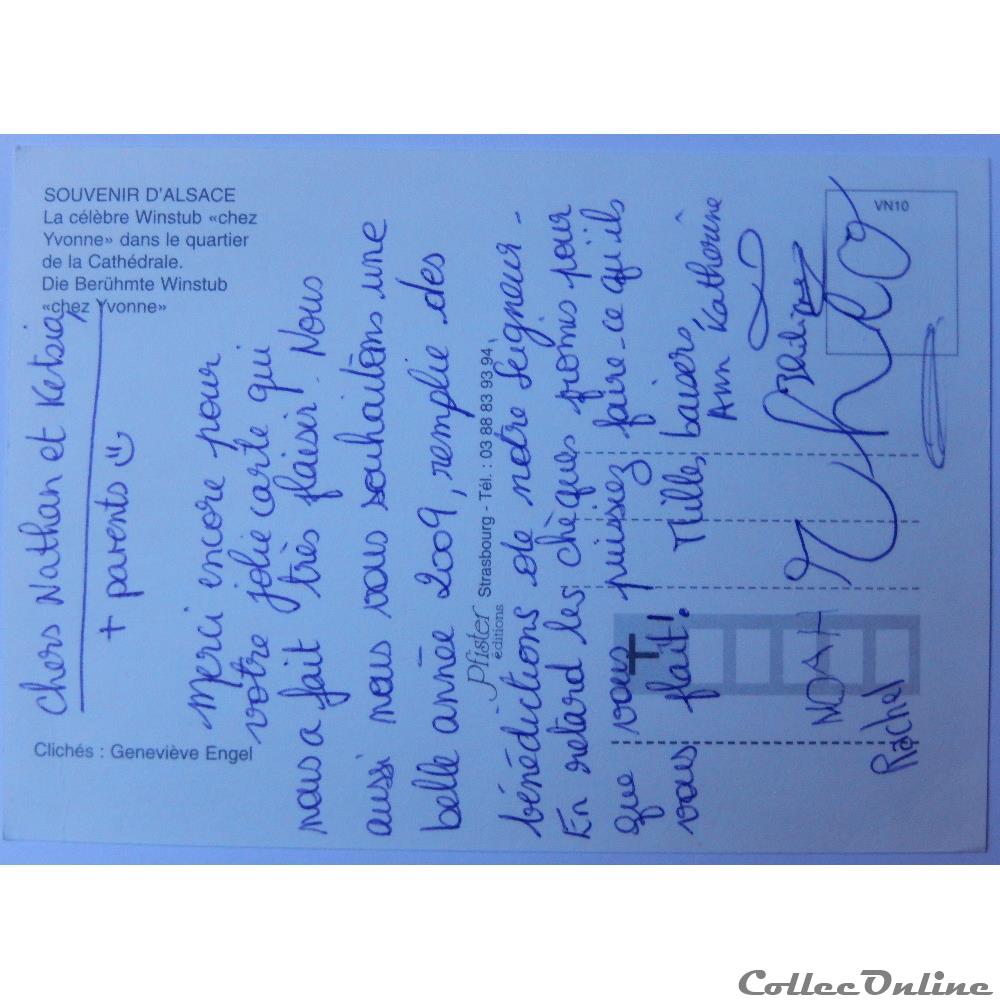 SOUVENIR D'ALSACE
La célèbre Winstub «chez
Yvonne» dans le quartier
de la Cathédrale.
Die Berühmte Winstub
«chez Yvonne»
Clichés : Geneviève Engel
Pfister
éditions
Strasbourg - Tél. : 03 88 83 93 94
VN10
Chers Nathan et Ketsia,
+ parents
Merci encore pour
votre jolie carte qui
nous a fait très plaisir. Nous
aussi nous vous souhaitons une
belle année 2009, remplie des
bénédictions de notre Seigneur -
En retard les chèques promis pour
que vous puissiez faire ce qu'ils
vous fait!
Mille baisers
Ann Katherine
NOAH
Rachel
CollecOnline